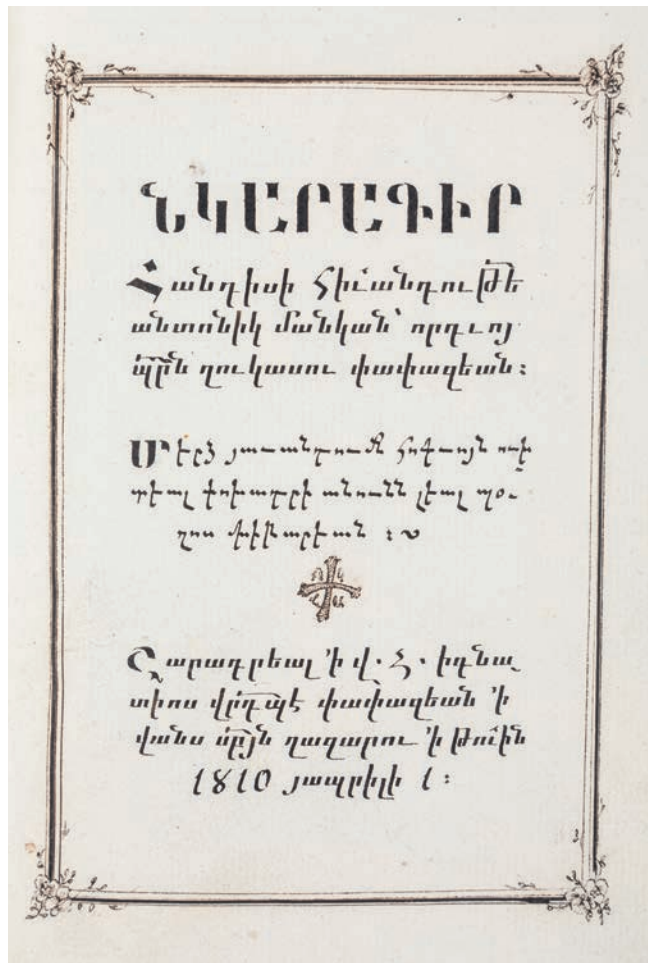 ՆԿԱՐԱԳԻՐ
Հանդիսի հիւանդութե
անտոնիկ մանկան՝ որդւոյ
պրն ղուկասու փափազեան։
Մերձ
անունն լեալ պօ֊
ղոս խիկարեան ։
Շարադրեալ ՚ի վ․ Հ․ իգնա֊
տիոս վրդպէ փափազեան ՚ի
վանս սրբյն ղազարու ՚ի թուին
1810 յապրիլի 1։